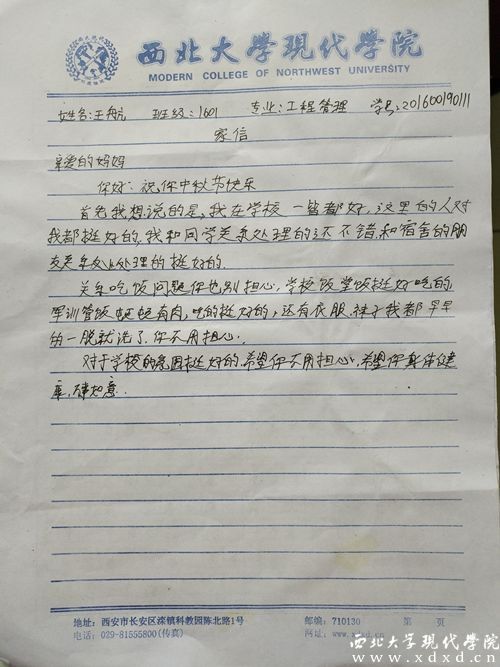 西北大学现代学院
MODERN COLLEGE OF NORTHWEST UNIVERSITY
姓名:王航 班级:1601 专业:工程管理 学号:201600190111
家信
亲爱的妈妈
你好:祝你中秋节快乐
首先我想说的是,我在学校一皆都好,这里的人对
我都挺好的,我和同学关系处理的还不错,和宿舍的朋
友关系处理的挺好的.
关系吃饭问题你也别担心,学校饭堂饭挺好吃的,
军训管饭顿顿有肉,吃的挺好的,还有衣服,袜子我都早早
的一脱就洗了,你不用担心.
对于学校的意困挺好的,希望你不用担心,希望你身体健
康,事如意.
地址:西安市长安区滦镇科教园陈北路1号 邮编:710130 第 页
电话:029-81555800(传真) 网址:www.xdxd.cn
西北大学现代学院
www.xdxd.cn